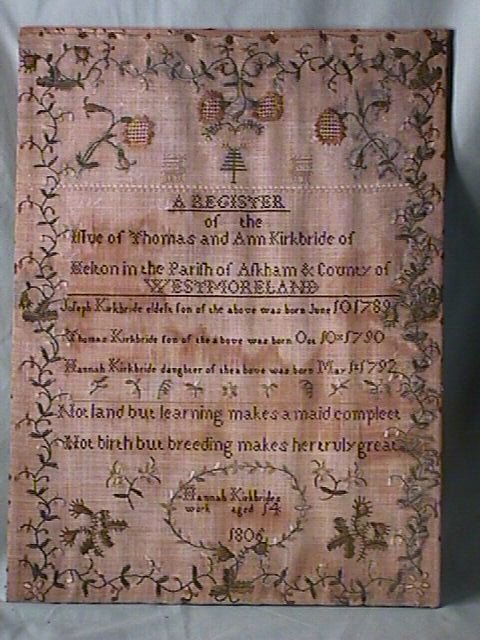 A REGISTER
of the
Iſſue of Thomas and Ann Kirkbride of
Helton in the Pariſh of Aſkham & County of
WESTMORELAND
Joſeph Kirkbride eldeſt ſon of the above was born June 10 1789
Thomas Kirkbride ſon of the above was born Oct 10 1790
Hannah Kirkbride daughter of the above was born May 1 1792
Not land but learning makes a maid compleet
Not birth but breeding makes her truly great
Hannah Kirkbrides
work aged 14
1806